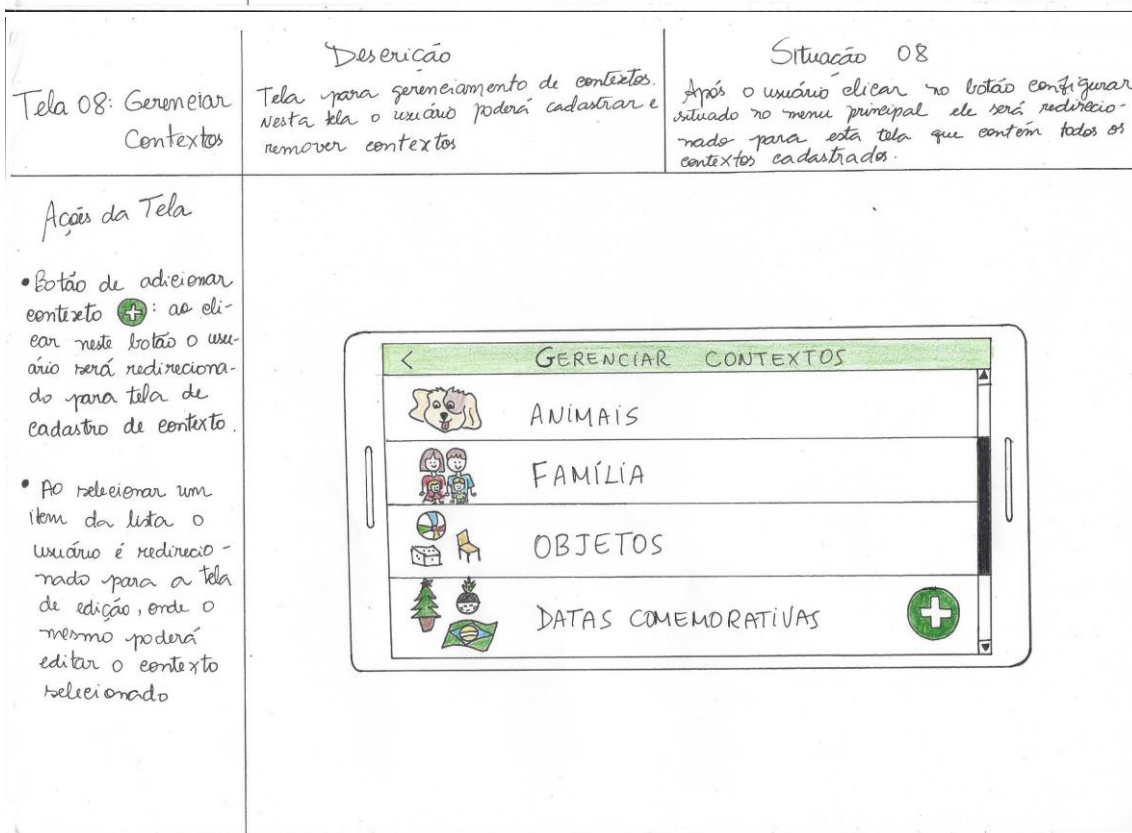 Tela 08: Gerenciar
Contextos
Descrição
Tela para gerenciamento de contextos.
Nesta tela o usuário poderá cadastrar e
remover contextos
Situação 08
Após o usuário clicar no botão configurar
situado no menu principal ele será redirecio-
nado para esta tela que contém todos os
contextos cadastrados.
Ações da Tela
• Botão de adicionar
contexto : ao cli-
car neste botão o usu-
ário será redireciona-
do para tela de
cadastro de contexto.
• Ao selecionar um
item da lista o
usuário é redirecio-
nado para a tela
de edição, onde o
mesmo poderá
editar o contexto
selecionado
< GERENCIAR CONTEXTOS
ANIMAIS
FAMÍLIA
OBJETOS
DATAS COMEMORATIVAS